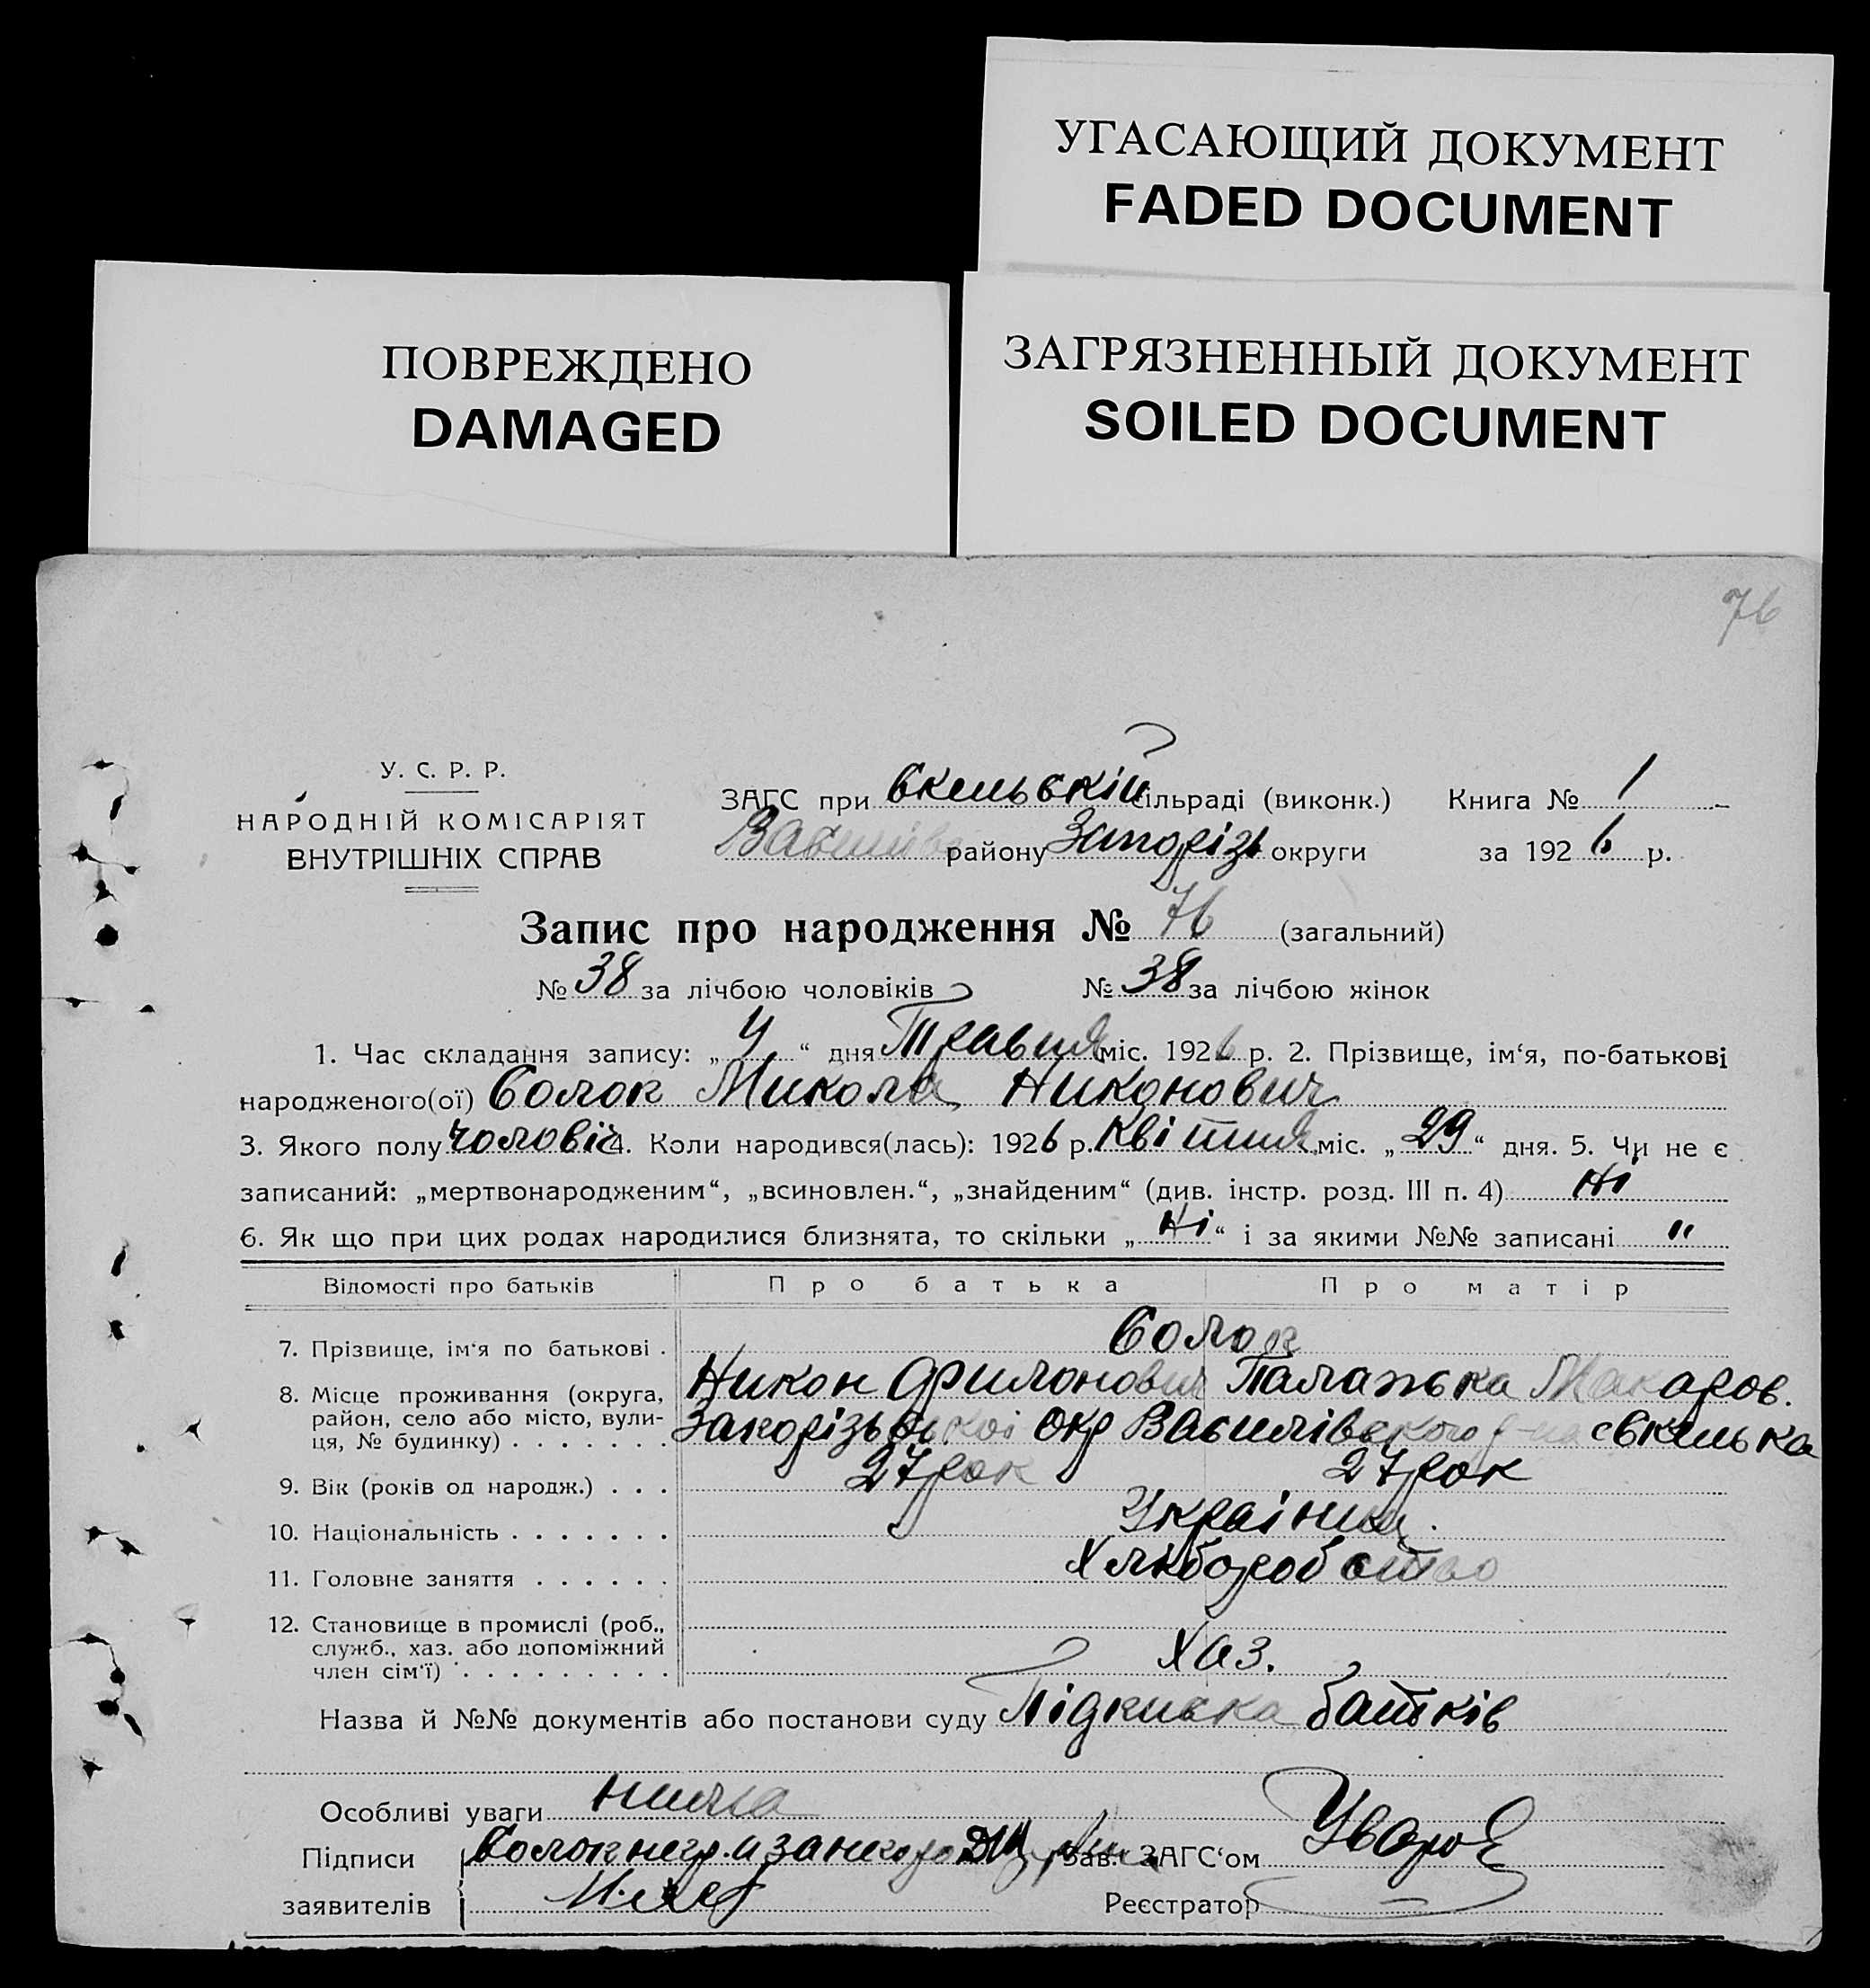 УГАСАЮЩИЙ ДОКУМЕНТ
FADED DOCUMENT
ПОВРЕЖДЕНО
DAMAGED
ЗАГРЯЗНЕННЫЙ ДОКУМЕНТ
SOILED DOCUMENT
76
У. С. Р. Р.
НАРОДНІЙ КОМІСАРІЯТ
ВНУТРІШНІХ СПРАВ
ЗАГС при Скельській сільраді (виконк.) Книга № 1
Василівс району Запоріз округи за 1926 р.
Запис про народження № 76 (загальний)
№ 38 за лічбою чоловіків № 38 за лічбою жінок
1. Час складання запису: „4“ дня Травня міс. 1926 р. 2. Прізвище, ім‘я, по-батькові
народженого(ої) Солок Микола Никонович
3. Якого полу чоловіч 4. Коли народився(лась): 1926 р. Квітня міс. „29“ дня. 5. Чи не є
записаний: „мертвонародженим“, „всиновлен.“, „знайденим“ (див. інстр. розд. III п. 4) Ні
6. Як що при цих родах народилися близнята, то скільки „Ні“ і за якими №№ записані "
Відомості про батьків Про батька Про матір
7. Прізвище, ім‘я по батькові . Солок
Никон Филонович Палажка Макаров.
8. Місце проживання (округа,
район, село або місто, вули-
ця, № будинку) . . . . . . . Окр Василівского р-на с Скелька
9. Вік (років од народж.) . . . 27 рок 27 рок
10. Національність . . . . . . . Україниц.
11. Головне заняття . . . . . . Хліборобство
12. Становище в промислі (роб.,
служб., хаз. або допоміжний
член сім‘ї) . . . . . . . . . . Хаз.
Назва й №№ документів або постанови суду батьків
Особливі уваги
Підписи Солок негр. Зав. ЗАГС‘ом
заявителів Реєстратор